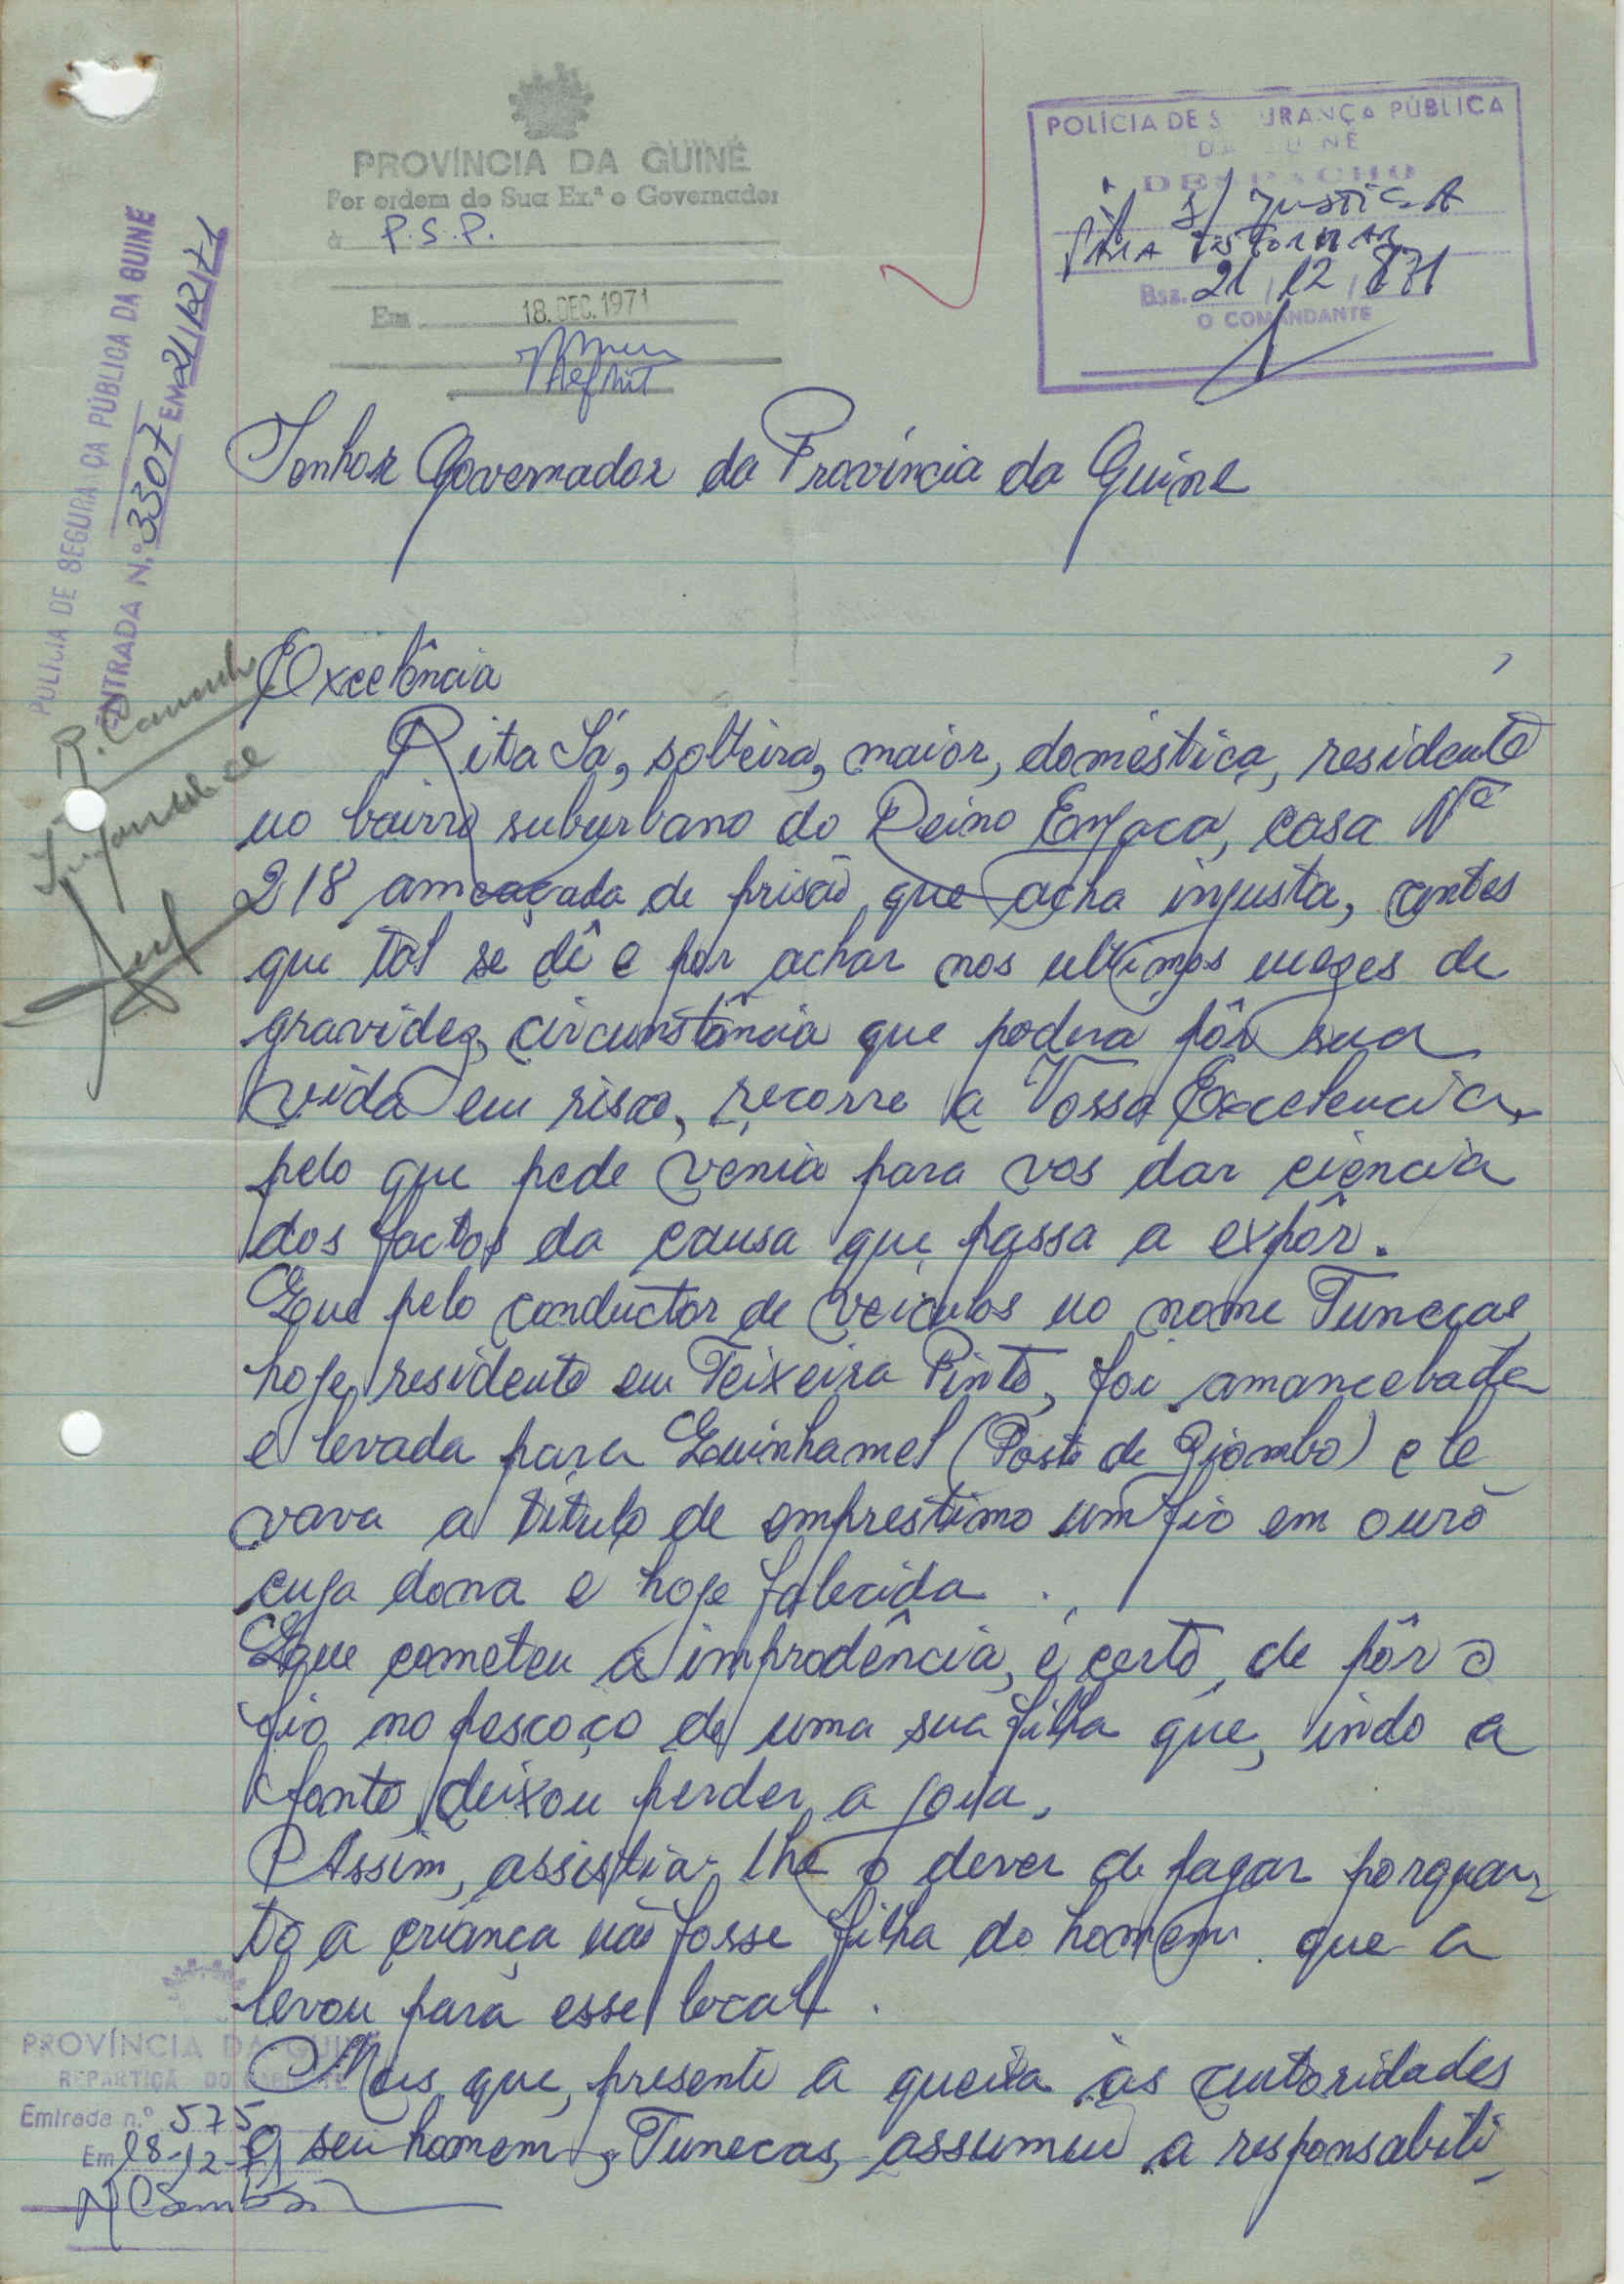 PROVÍNCIA DA GUINÉ
Por ordem de Sua Ex.ª o Governador
à P.S.P.
Em 18. DEC. 1971
POLÍCIA DE S URANÇA PÚBLICA
DA GUINÉ
DESPACHO
À S/ JUSTIÇA
PARA INFORMAR
Bss. 21 / 12 / 971
O COMANDANTE
POLÍCIA DE SEGURA ÇA PÚBLICA DA GUINÉ
ENTRADA N.º 3307 EM 21/12/71
Senhor Governador da Província da Guine
Excelência
Rita Sá, solteira, maior, doméstica, residente
no bairro suburbano do Reino Enjaca, casa Nº
218 ameaçada de prisão que acha injusta, antes
que tal se dê e por achar nos ultimos mezes de
gravidez, circunstância que podera pôr sua
vida em risco, recorre a Vossa Excelencia,
pelo que pede venia para vos dar ciência
dos factos da causa que passa a expôr.
Que pelo conductor de veiculos no nome Tunecas
hoje residente em Teixeira Pinto, foi amancebada
e levada para Quinhamel (Posto de Biombo) e le
vava a titulo de emprestimo um fio em ouro
cuja dona e hoje falecida.
Que cometeu a improdência, é certo, de pôr o
fio no pescoço de uma sua filha que, indo a
fonte, deixou perder a joia.
Assim, assistia-lhe o dever de pagar porquan-
to a criança não fosse filha do homem que a
levou para esse local.
Mas que, presente a queixa às autoridades
o seu homem, Tunecas, assumiu a responsabili-
PROVÍNCIA DA GUINÉ
REPARTIÇÃ DO GABINETE
Entrada n.º 575
Em 18-12-71